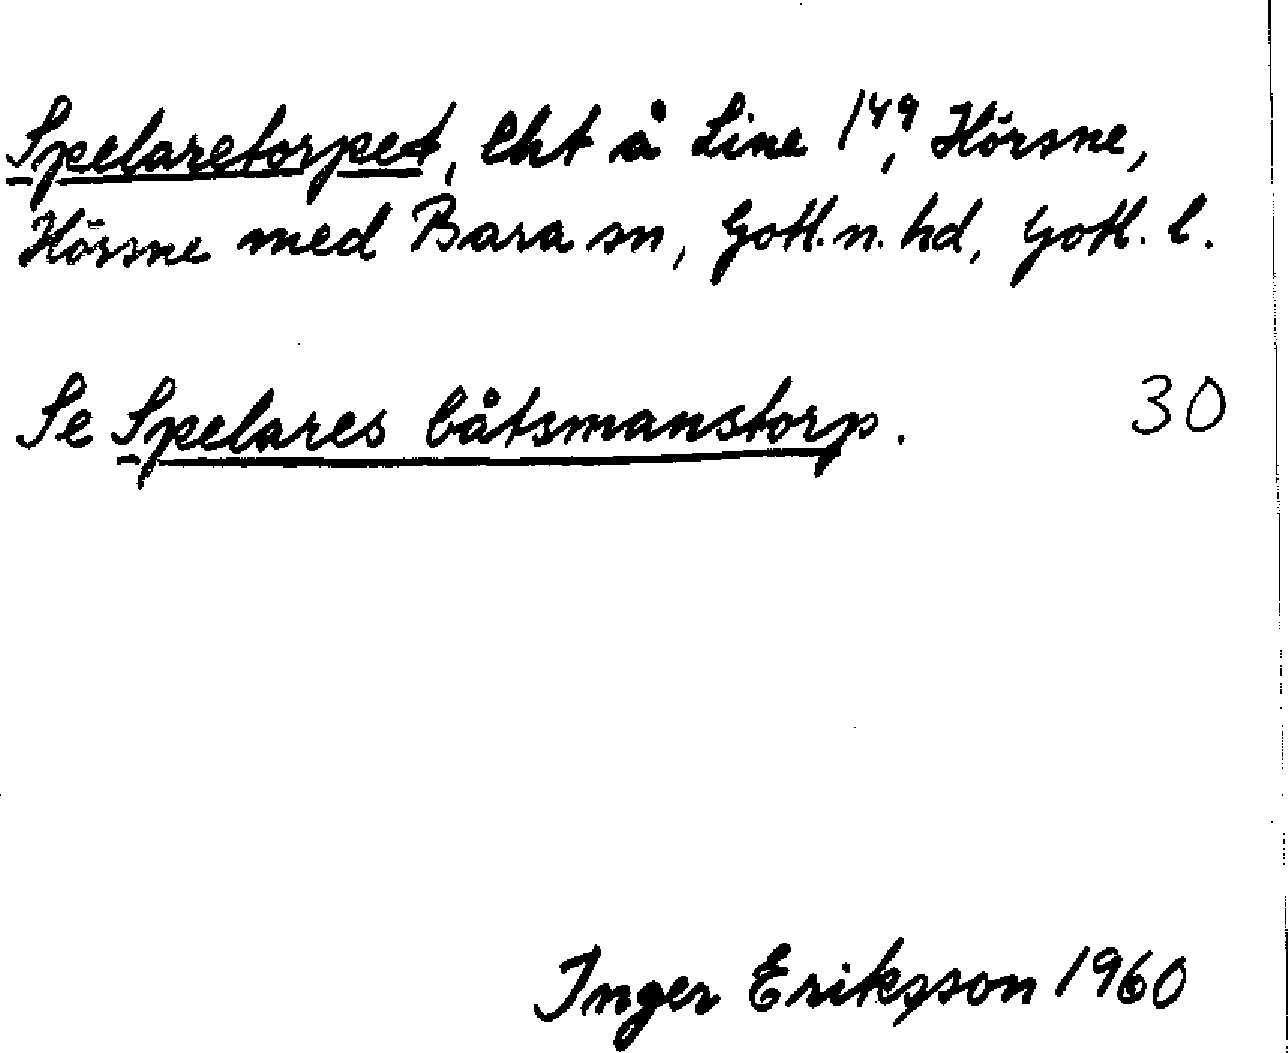 Spelaretorpet, lht å Line 1⁴⁹, Hörsne,
Hörsne med Bara sn, Gotl. n. hd, Gotl. l.
Se Spelares båtsmanstorp. 30
Inger Eriksson 1960